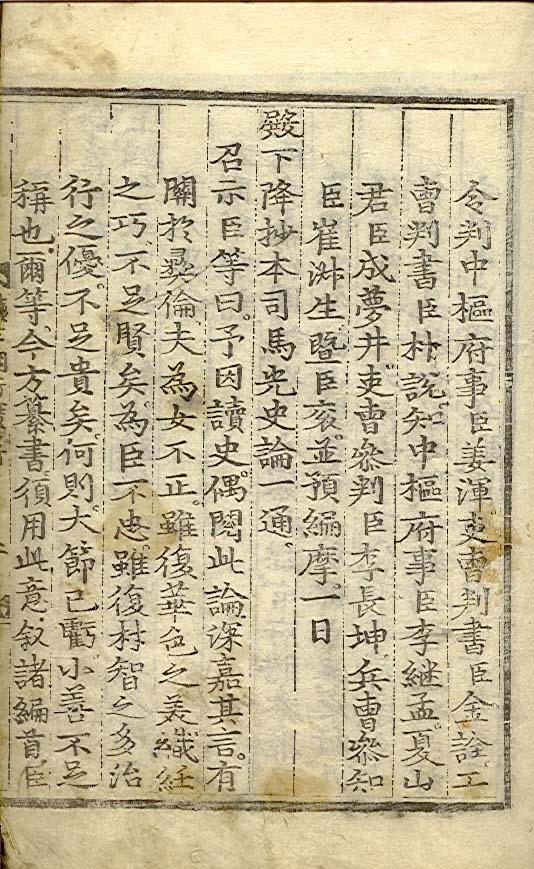 令判中樞府事臣姜渾吏曹判書臣金詮工
曹判書臣朴說知中樞府事臣李繼孟夏山
君臣成夢井吏曹參判臣李長坤兵曹參知
臣崔淑生暨臣衮並預編摩一日
殿下降抄本司馬光史論一通
召示臣等曰予因讀史偶閱此論深嘉其言有
關於彝倫夫為女不正雖復華色之美織紝
之巧不足賢矣為臣不忠雖復材智之多治
行之優不足貴矣何則大節已虧小善不足
稱也爾等今方纂書須用此意叙諸編首臣